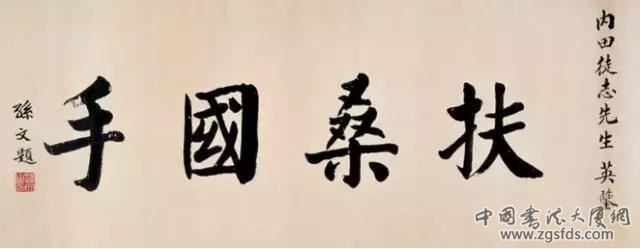 内田徒志先生英鑒
扶桑國手
孫文題
中國書法大厦網
www.zgsfds.com